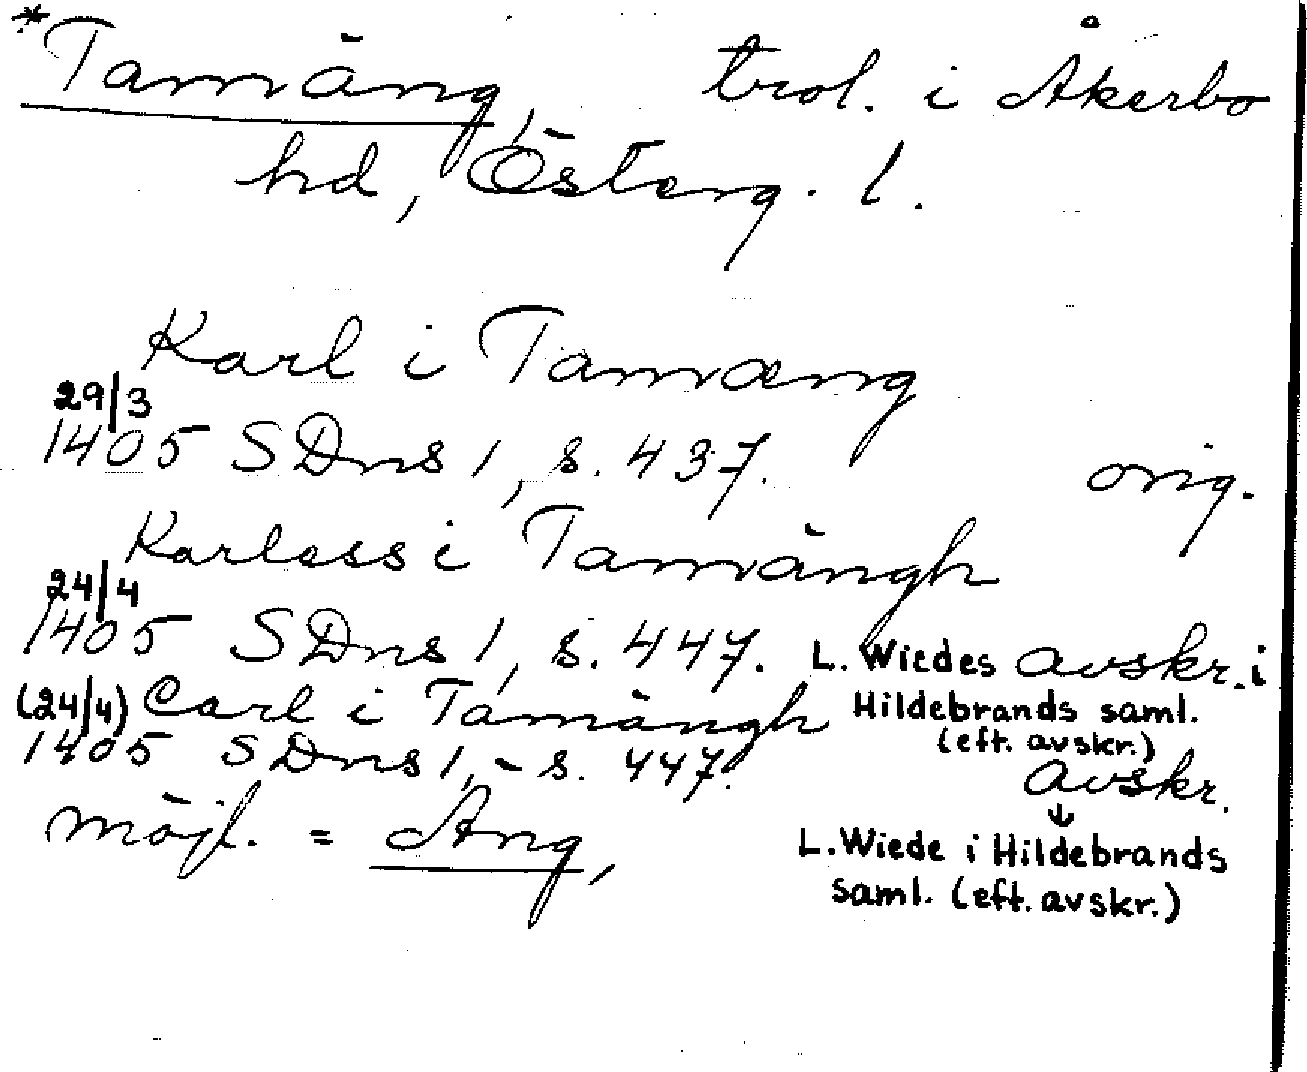 *Tamäng, trol. i Åkerbo
hd, Österg. l.
Karl i Tamæng
29/3
1405 SDns 1, s. 437. orig.
Karless i Tamängh
24/4
1405 SDns 1, s. 447. L. Wiedes avskr. i
Hildebrands saml.
(eft. avskr.)
(24/4) Carl i Tamängh
1405 SDns 1, s. 447. avskr.
↓
L. Wiede i Hildebrands
saml. (eft. avskr.)
möjl. = Äng,